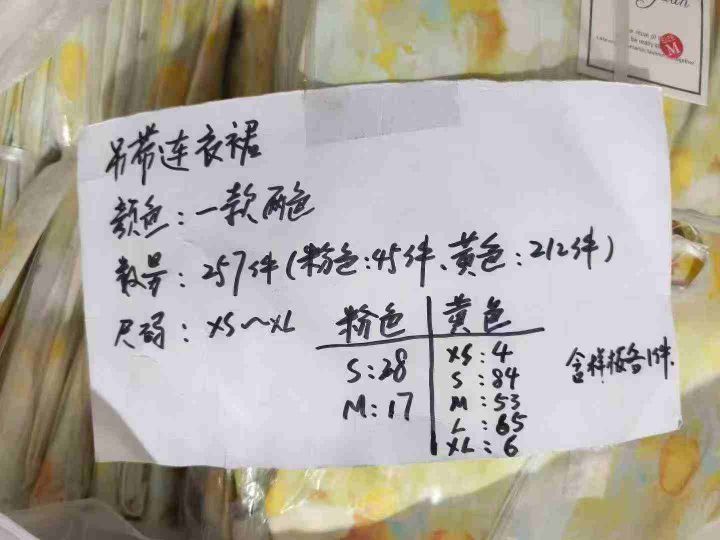 吊带连衣裙
颜色：一款两色
数量：257件（粉色：45件、黄色：212件）
尺码：XS～XL
粉色
S：28
M：17
黄色
XS：4
S：84
M：53
L：65
XL：6
含样板各1件.
M